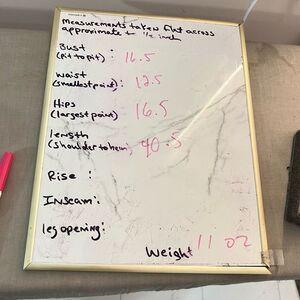 Measurements taken flat across
approximate to 1/2 inch
Bust
(pit to pit) : 16.5
Waist
(smallest point) : 12.5
Hips
(largest point) : 16.5
length
(shoulder to hem) : 40.5
Rise :
Inseam:
leg opening:
Weight 11 oz